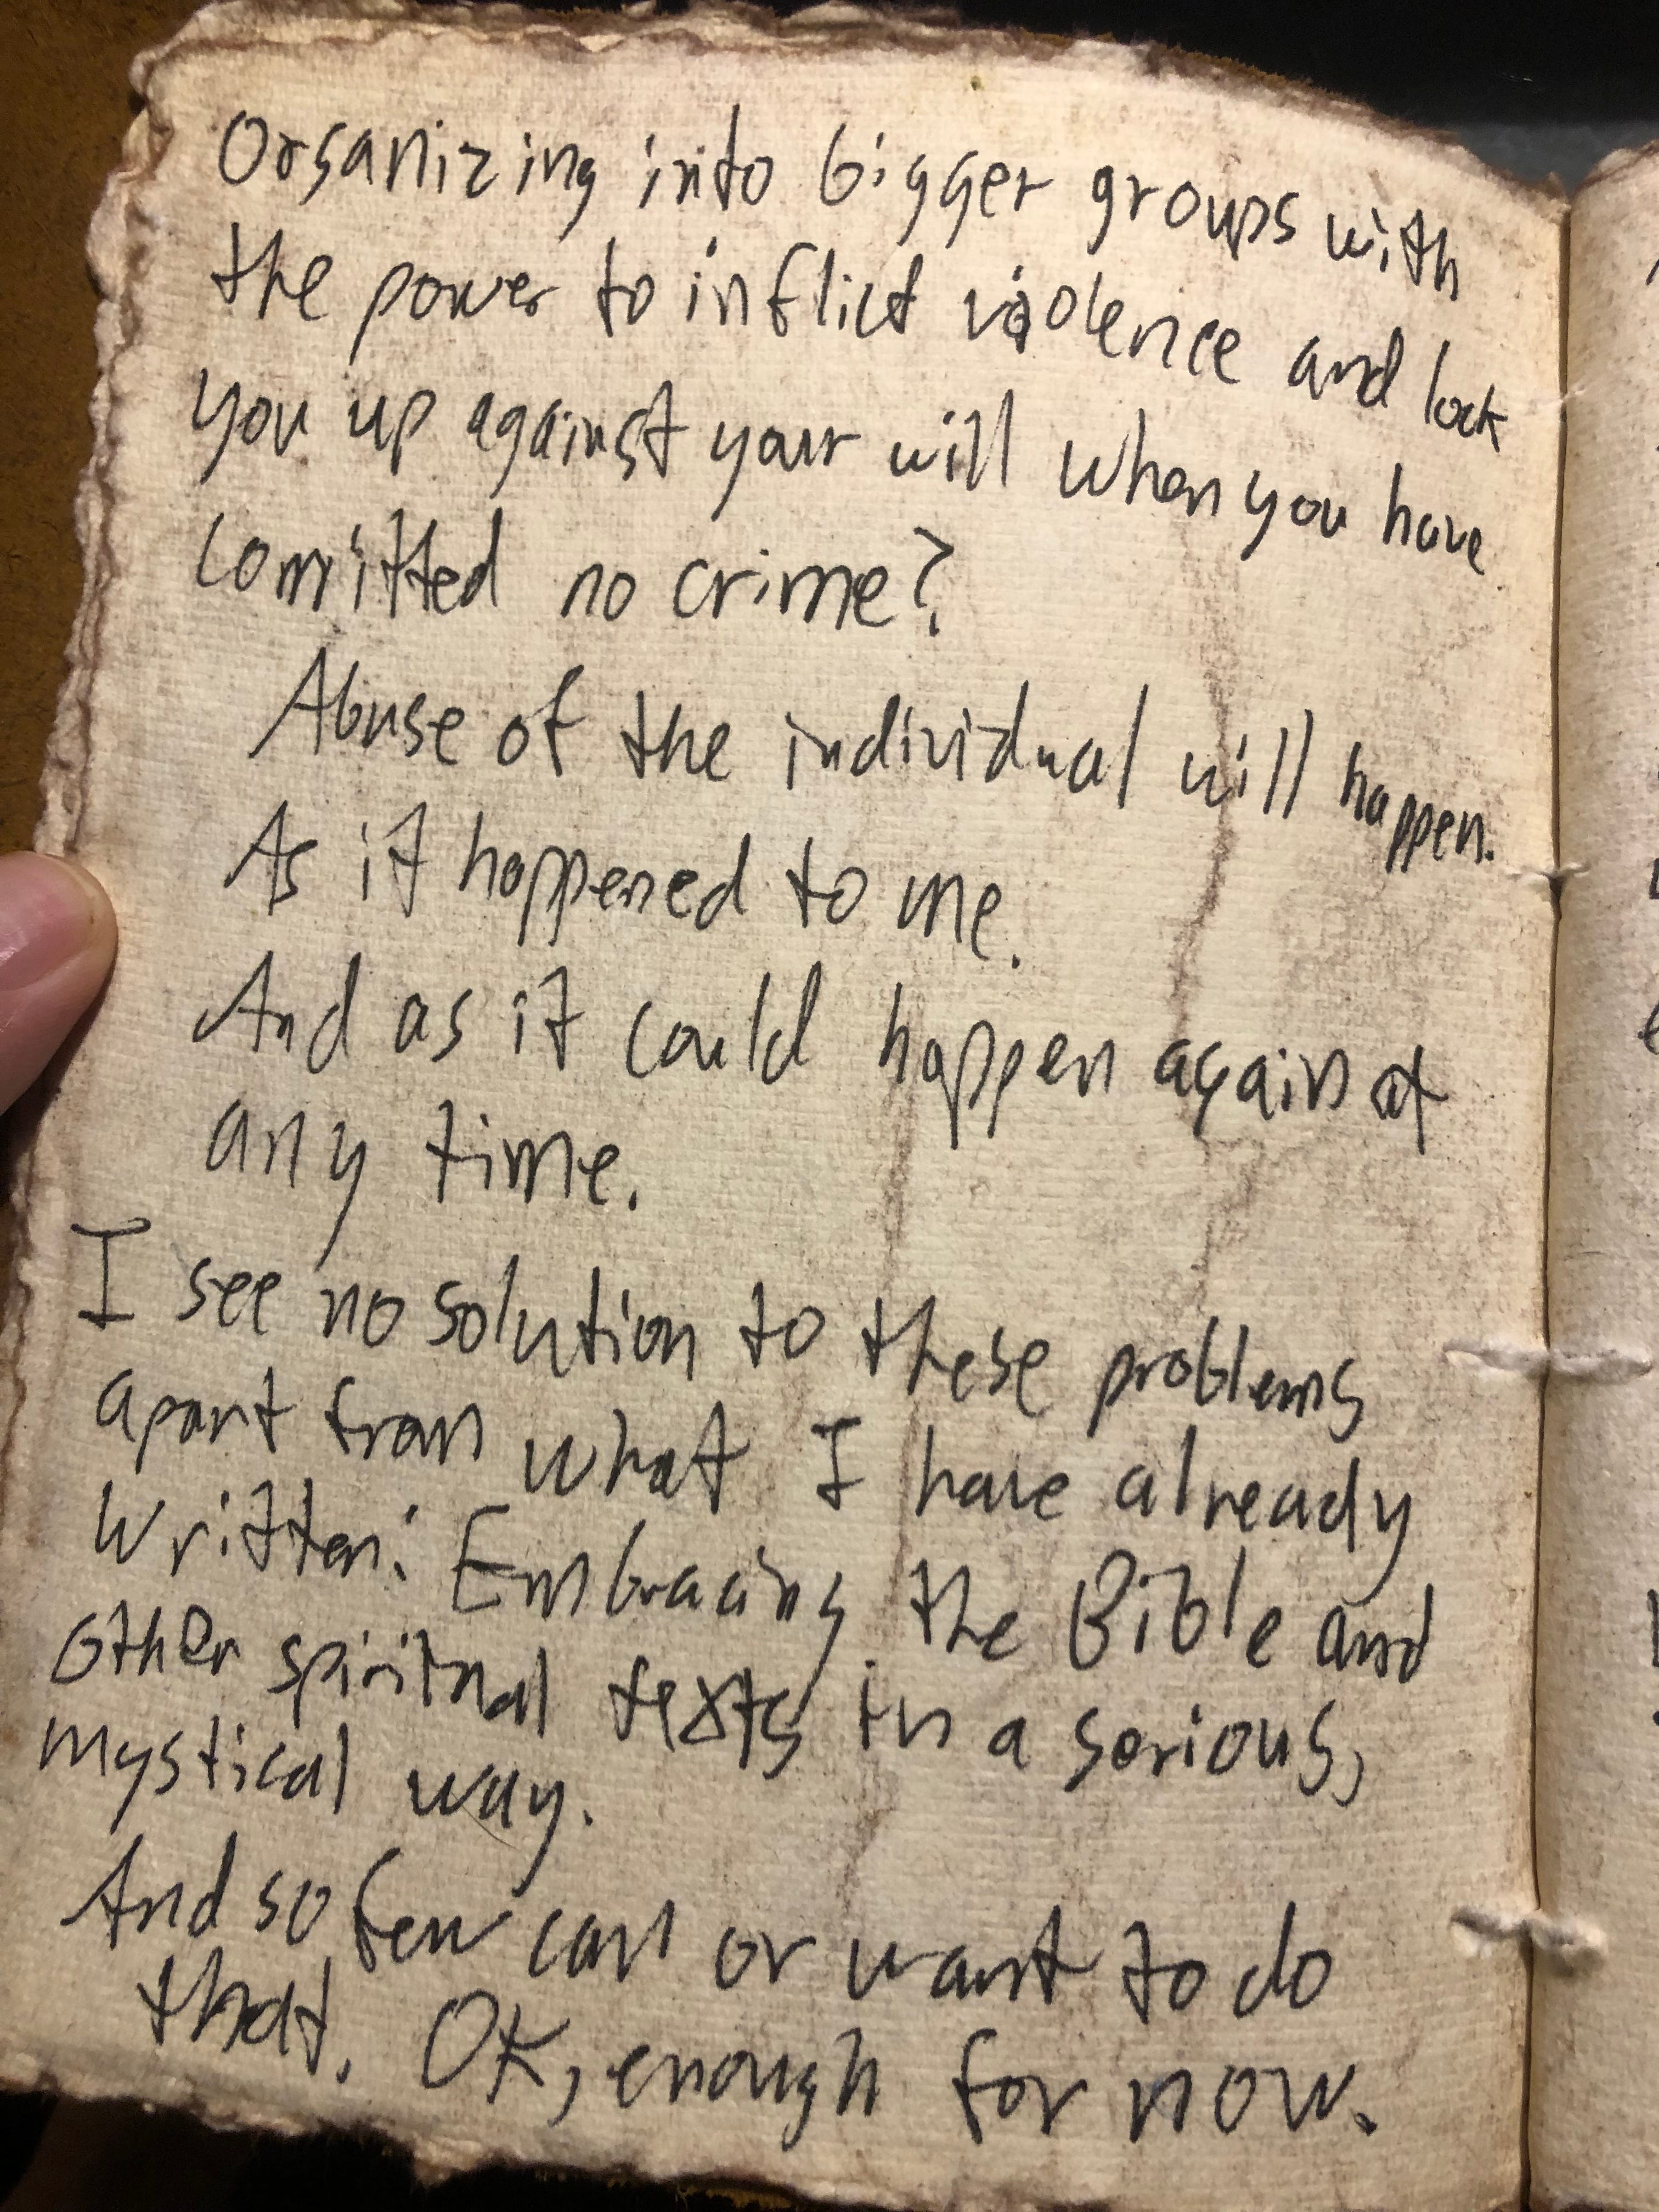 Organizing into bigger groups with
the power to inflict violence and lock
you up against your will when you have
comitted no crime?
Abuse of the individual will happen.
As it happened to me.
And as it could happen again at
any time.
I see no solution to these problems
apart from what I have already
written: Embracing the Bible and
other spiritual texts in a serious,
mystical way.
And so few can or want to do
that. OK, enough for now.